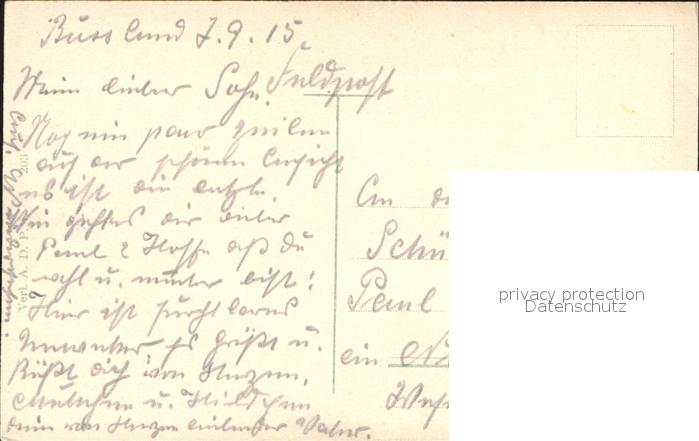 Russland 7.9.15
Feldpost
Mein lieber Sohn.
Noch ein paar Zeilen
auf der schönen Ansicht
es ist die letzte.
Wie geht es dir lieber
Paul? Hoffe daß du
wohl u. munter bist!
Hier ist furchtbares
Unwetter. Es grüßt u.
küßt dich von Herzen,
u. Hildchen
dein von Herzen liebender Vater.
Verl. A. D. P. 203
An de
Schü
Paul
ein
privacy protection
Datenschutz